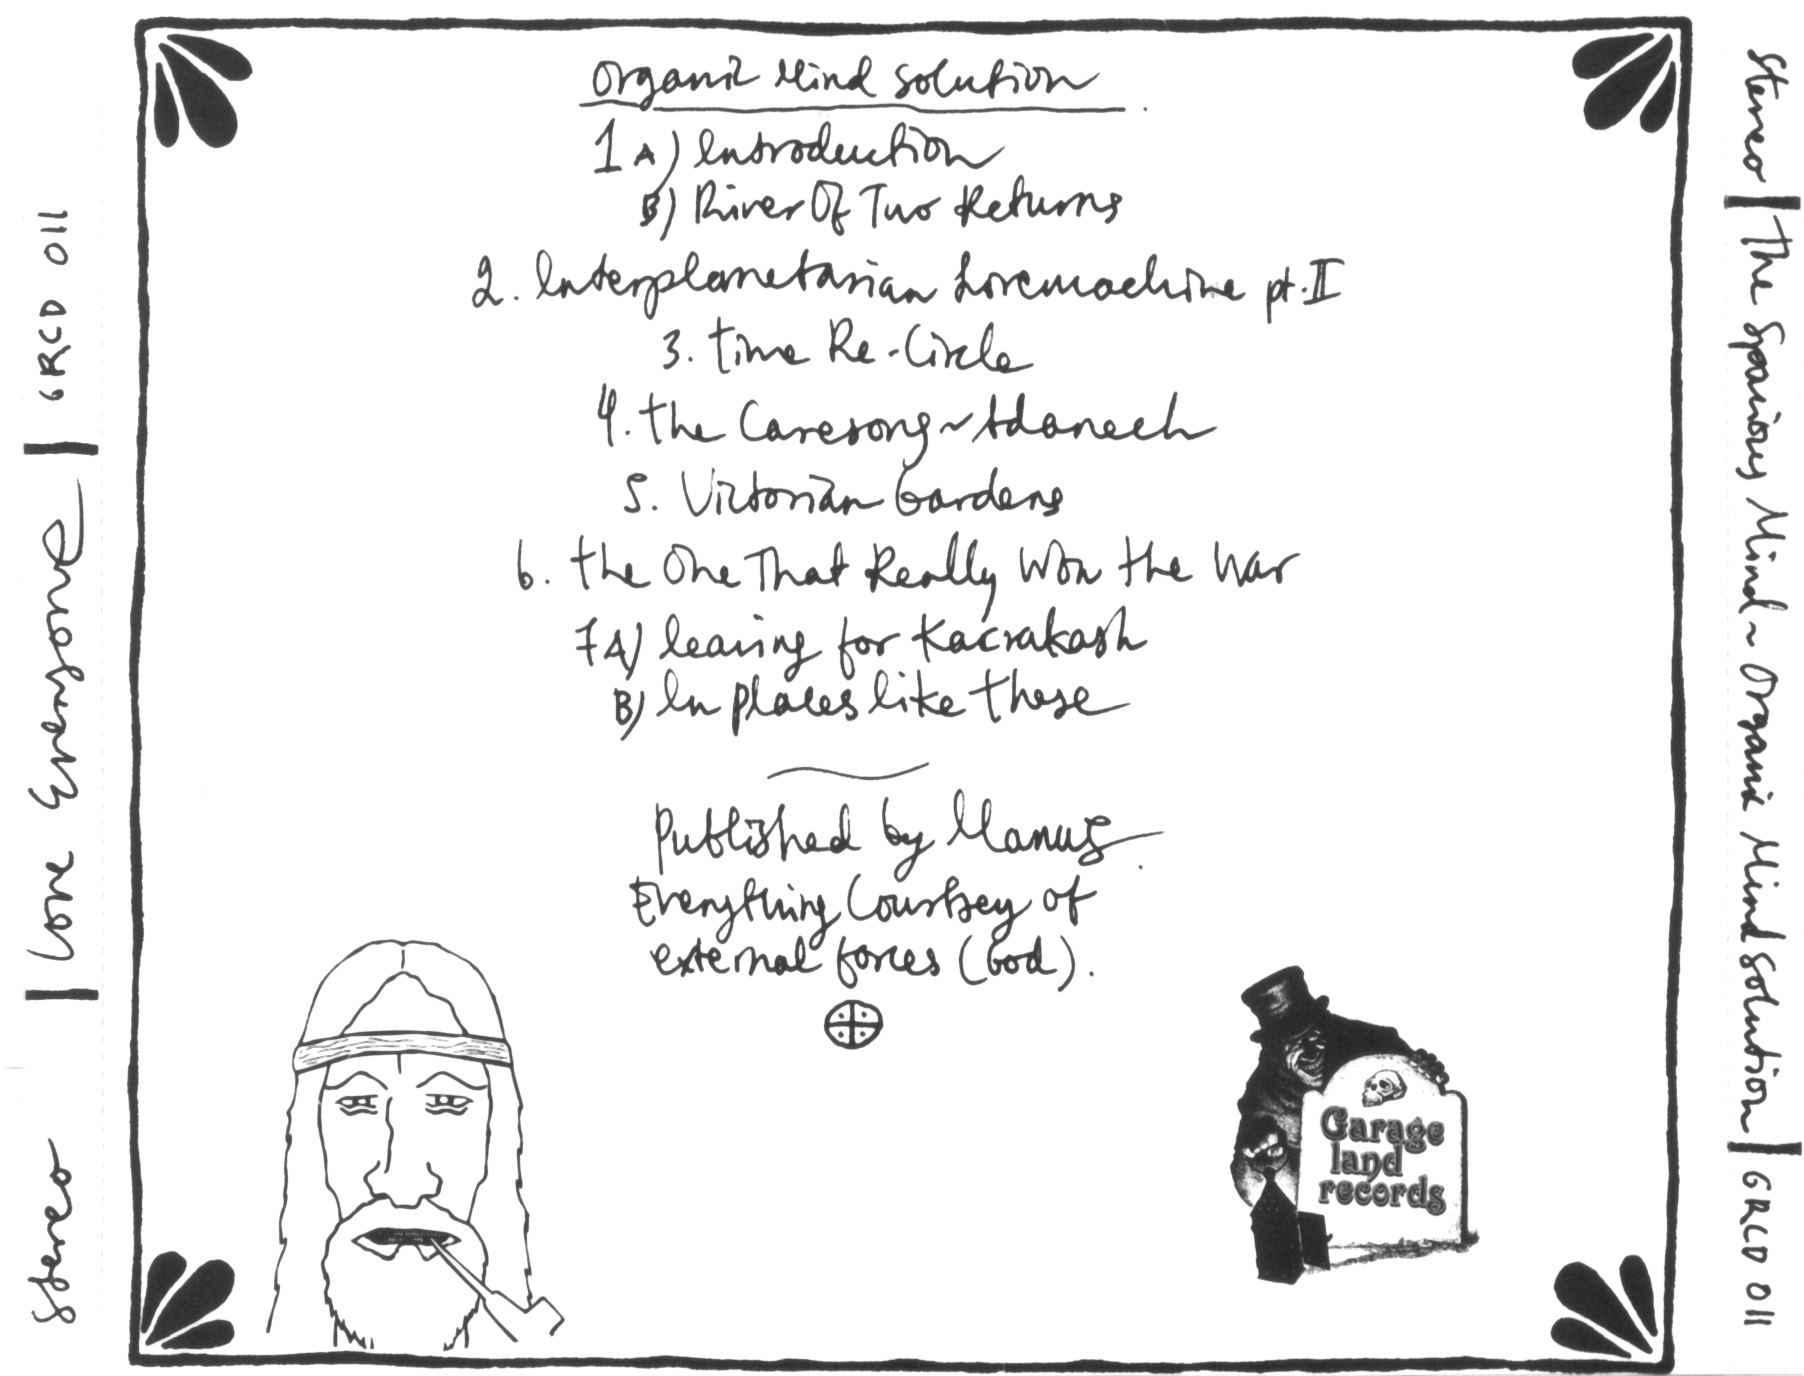 Organic Mind Solution
1 A) Introduction
B) River Of Two Returns
2. Interplanetarian Lovemachine pt. II
3. Time Re-Circle
4. The Caresong ~ Adanech
5. Victorian Gardens
6. The One That Really Won The War
7 A) leaving for Kacrakash
B) In places like these
Published by Manus
Everything Courtsey of
external forces (God).
Garage
land
records
Stereo | Love Everyone | GRCD 011
Stereo | The Spacious Mind ~ Organic Mind Solution | GRCD 011